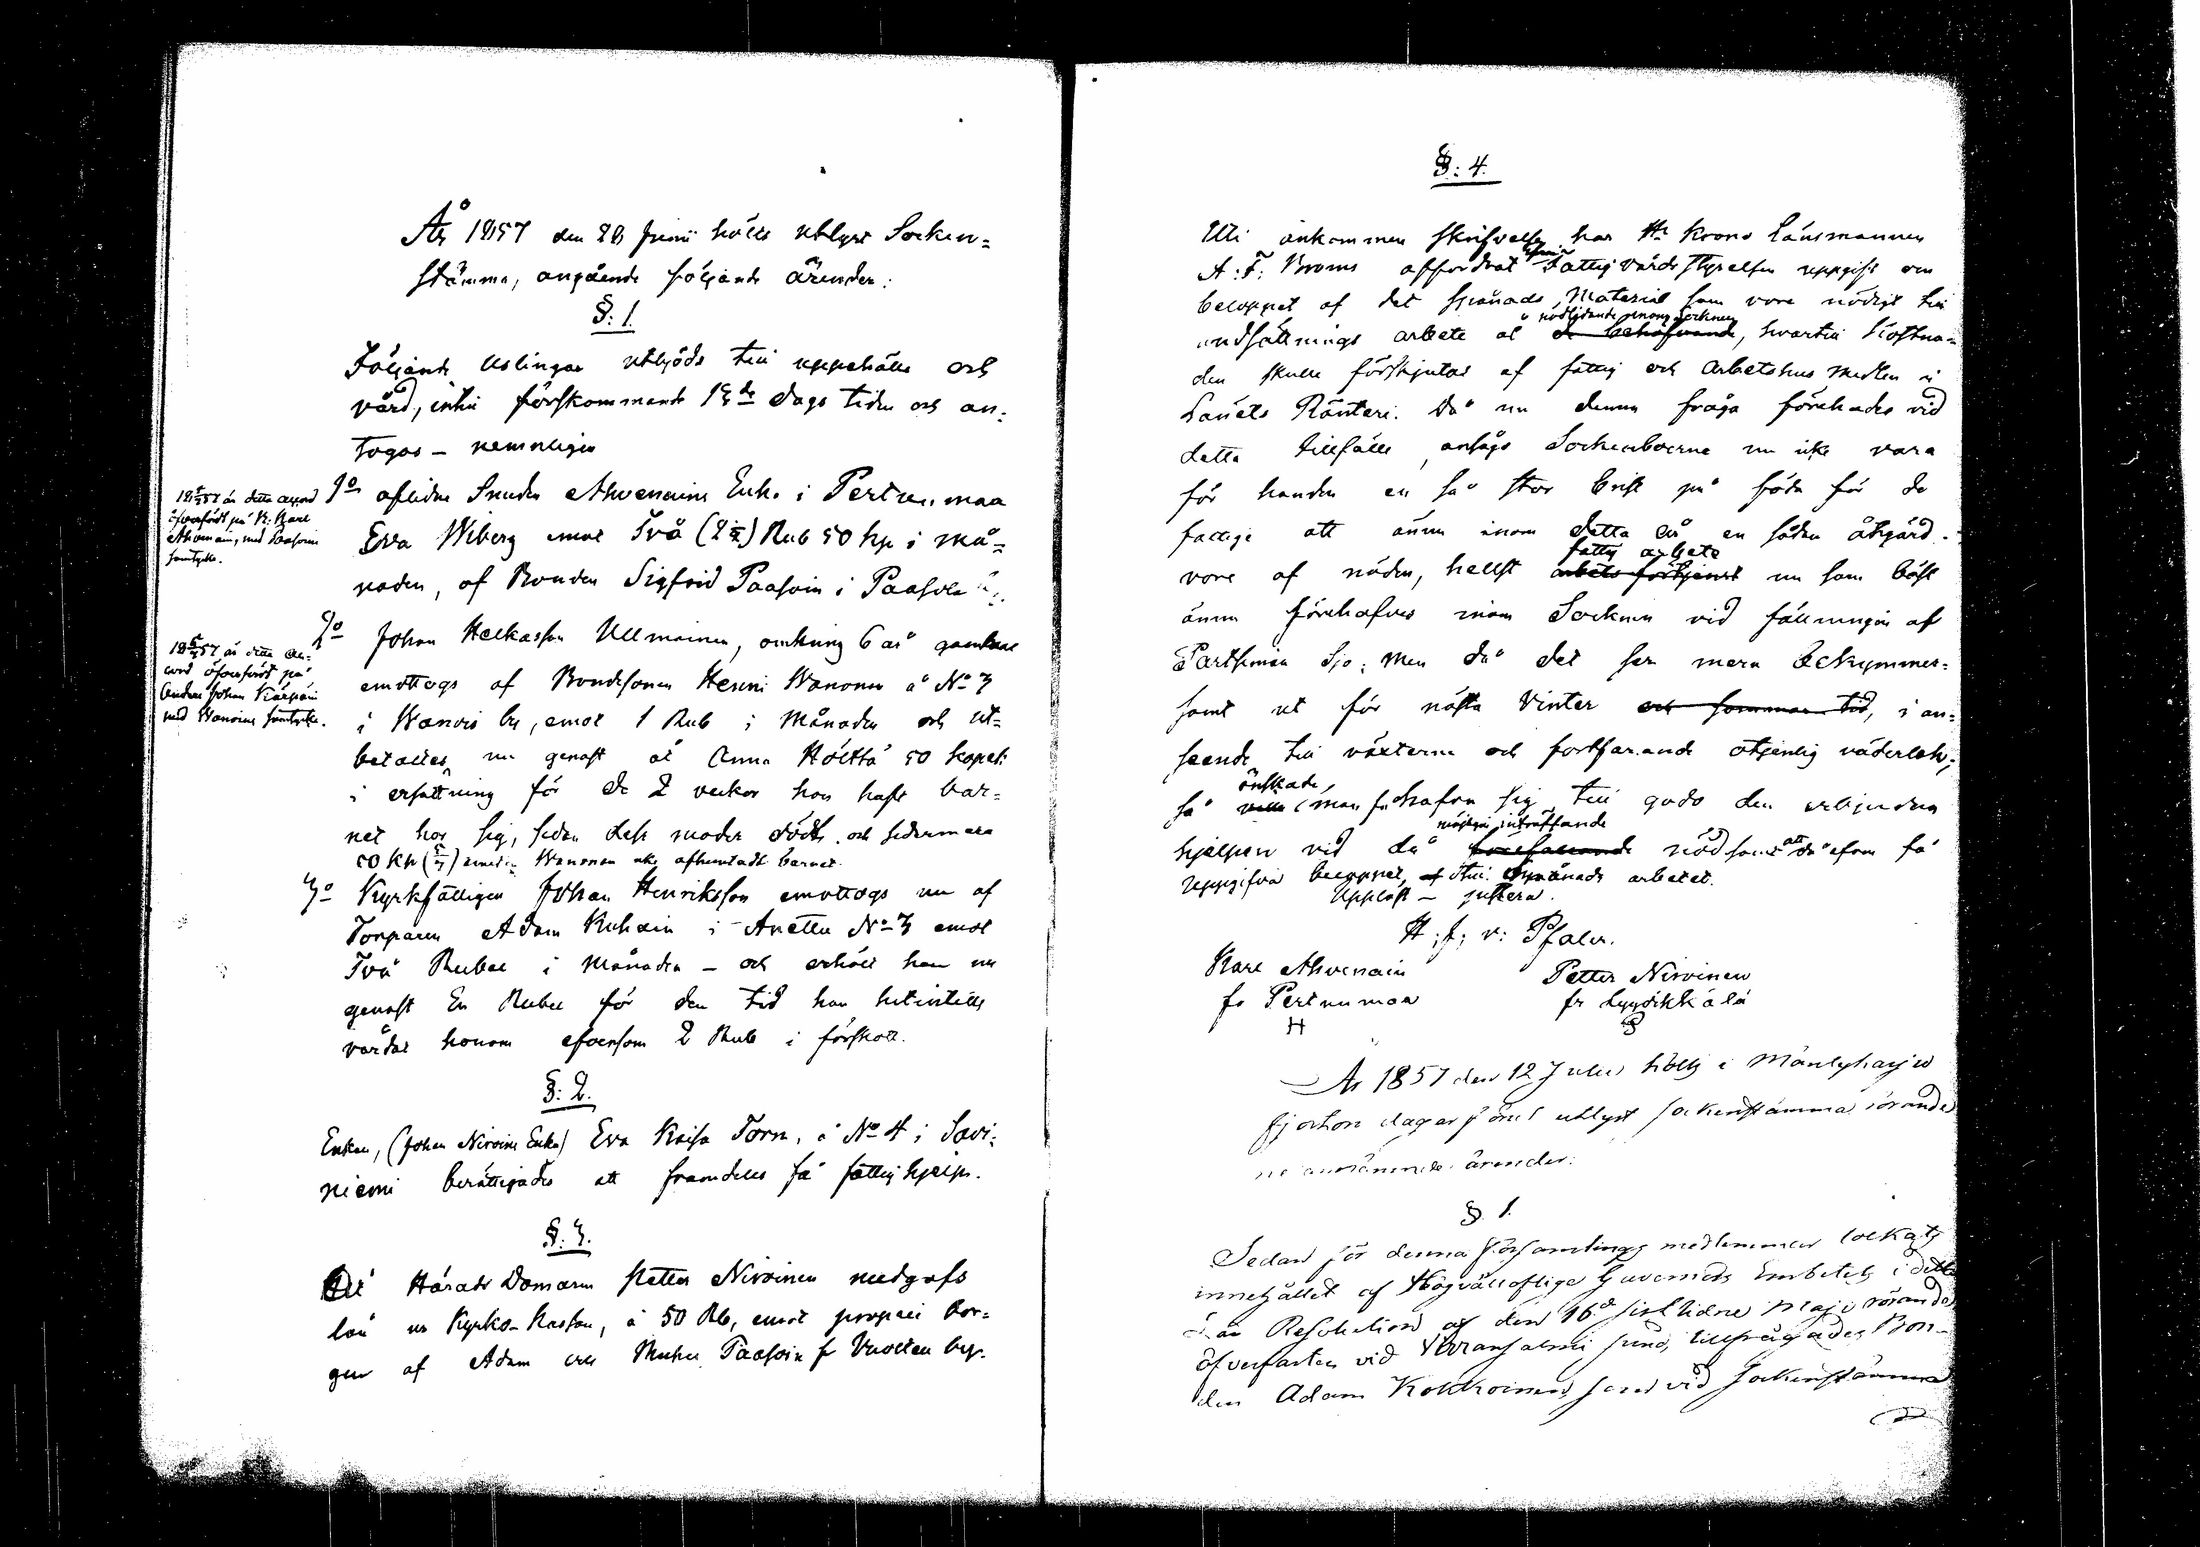 År 1857 den 28 Junii hölls utlyst Socken-
stämma, angående följande ärenden:
§: 1.
Följande uslingar utbjöds till uppehälle och
vård, intill förstkommande 15de dags tiden och an-
togos – nemnligen
1o aflidne Smeden Ahvenains Enka i Pertunmaa
Eva Wiberg emot Två (2) Rub 50 kp i må-
naden, af Bonden Sigfrid Paasoin i Paasola
1857 är detta accord
öfverfördt på K: Karl
Ahvenain, med Paasoins
samtycke.
2o Johan Heikasson Ullmainen, omkring 6 år gammal
emottogs af Bondesonen Henric Wanonen å No 3
i Wanois by, emot 1 Rub i Månaden och ut-
betaltes nu genast åt Anna Hölttä 50 kopek
i ersättning för de 2 veckor hon haft bar-
net hos sig, sedan dess moder dödt och sedermera
50 kp emedan Wanonen ick afhemtadt barnet.
1857 är detta ac-
cord öfverfördt på
bonden Johan Kärpäin
med Wanoins samtycke.
3o Kyrkfattigen Johan Henriksson emottogs nu af
Torparen Adam Kuhain i Anettu No 3 emot
Två Rubel i Månaden – och erhöll han nu
genast En Rubel för den tid han hitintills
vårdat honom äfvensom 2 Rub i förskott.
§: 2.
Enkan, (Johan Niroins Enka) Eva Kaisa Torn, å No 4 i Savi-
niemi berättigades att framdeles få fattighjelp.
§: 3.
Åt Härads Domaren Petter Niroinen medgafs
lån ur Kyrko-Kassan, à 50 Rb, emot propriei bor-
gen af Adam och Paasoin fr Vuolten by.
§: 4.
Uti ankommen skrifvelse har Hr Krono Länsmannen
A: F: Broms affordrat Fattigvårdsstyrelsen uppgift om
beloppet af det spånads Material som vore nödigt till
undsättnings arbete åt de behöfvande nödlidande inom Socknen, hvartill kostna-
den skulle förskjutas af fattig och arbetshus medlen i
Länets Ränteri. Då nu denna fråga förehades vid
detta tillfälle, ansågo Sockenboerne nu icke vara
för handen en så stor brist på föda för de
fattige att ännu inom detta år en sådan åtgärd
vore af nöden, helst arbets förtjenst fattig arbete nu som bäst
ännu förehafves inom Socknen vid fällningen af
Partsimaa Sjö; Men då det ser mera bekymmer-
samt ut för nästa Vinter och sommar tid, i an-
seende till växterne och fortfarande otjenlig väderlek;
så ville önskade man förbehafva sig till godo den erbjudna
hjelpen vid då förefallande möjligen inträffande nöd samt att då äfven få
uppgifva beloppet af till spånads arbetet.
Uppläst – justera.
H: f: v: Pfaler.
Karl Ahvenain
fr Pertunmaa
H
Petter Niroinen
fr Lyydikkälä
År 1857 den 12 Julii hölls i Mäntyharju
fjorton dagar förut utlyst sockenstämma rörande
nedannämnde ärender:
§ 1.
Sedan för denna församlings medlemmar lockats
innehållet af Högvälloflige Guvernörs Embetets i detta
Län Resolution af den 16de sistlidne Maji rörande
öfverfarten vid Varansalmi sund, tillfrågades Bon-
den Adam Kokkoinen, som vid sockenstämma